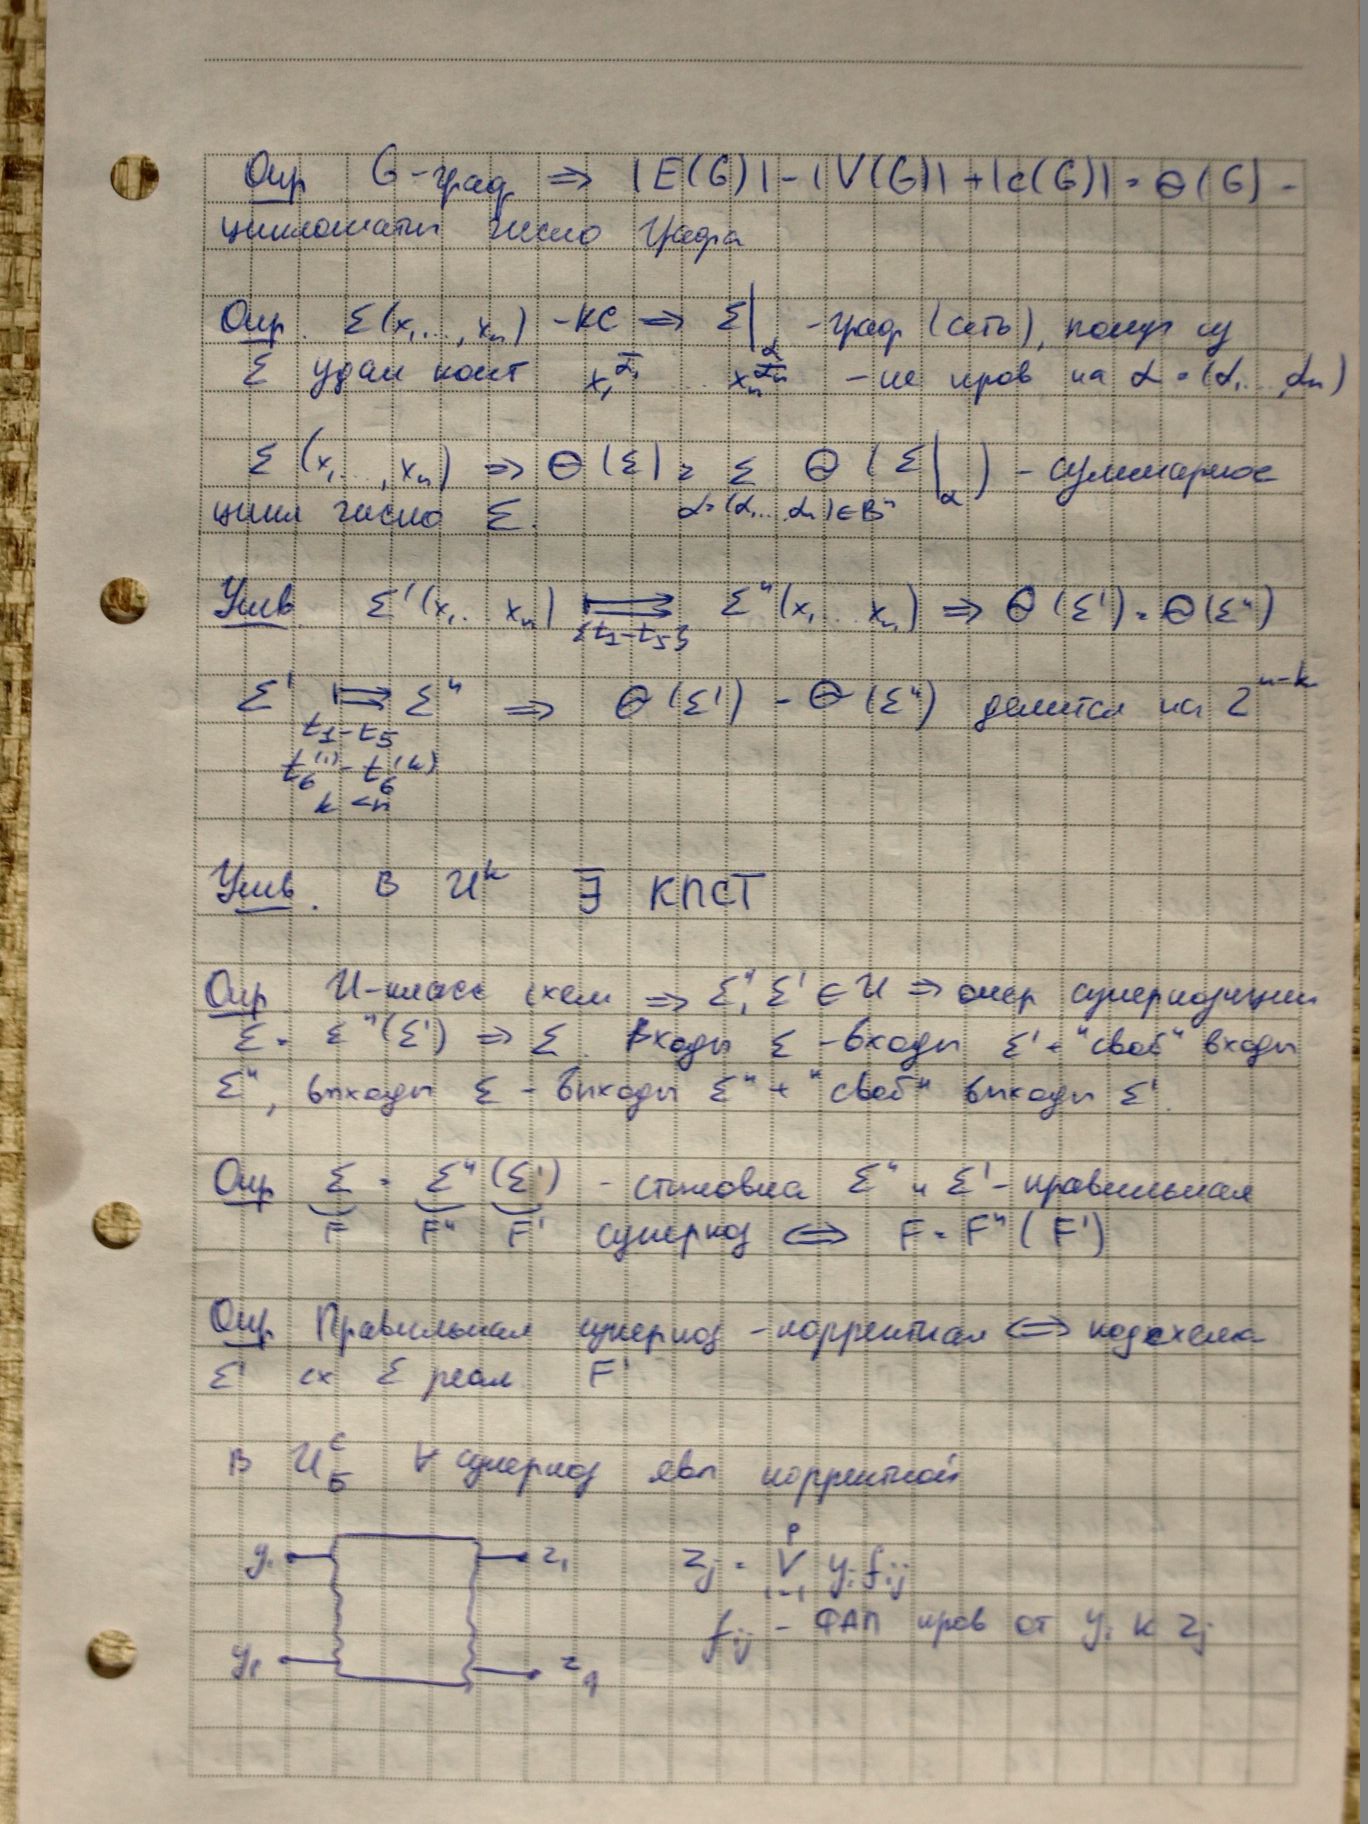 Опр G-граф ⇒ |E(G)| - |V(G)| + |c(G)| = Θ(G) -
цикломатич число графа
Опр. Σ(x₁..., xₙ) - КС ⇒ Σ|α - граф (сеть), получ из
Σ удал конт x₁^ᾱ₁ ... xₙ^ᾱₙ - не пров на α = (α₁..., αₙ)
Σ(x₁..., xₙ) ⇒ Θ(Σ) = Σ Θ(Σ|α) - суммарное
α=(α₁...αₙ)∈Bⁿ
цикл число Σ.
Утв Σ'(x₁...xₙ) ⇒ Σ"(x₁...xₙ) ⇒ Θ(Σ') = Θ(Σ")
{t₁-t₅}
Σ' ⇒ Σ" ⇒ Θ(Σ') - Θ(Σ") делится на 2ⁿ⁻ᵏ
t₁-t₅
t₆⁽¹⁾ - t₆⁽ᵏ⁾
k < n
Утв. В Uᴷ ∄ КПСТ
Опр U-класс схем ⇒ Σ", Σ' ∈ U ⇒ опер суперпозиции
Σ = Σ"(Σ') ⇒ Σ. Входы Σ - входы Σ' + "своб" входы
Σ", выходы Σ - выходы Σ" + "своб" выходы Σ'.
Опр Σ = Σ"(Σ') - стыковка Σ" и Σ' - правильная
F F" F' суперпоз ⇔ F = F"(F')
Опр Правильная суперпоз - корректная ⇔ подсхема
Σ' сх Σ реал F'
В U ∀ суперпоз явл корректной
y₁ z₁ zⱼ = ⋁ᵢ₌₁ᵖ yᵢ fᵢⱼ
fᵢⱼ - ФАЛ пров от yᵢ к zⱼ
yₚ z_q